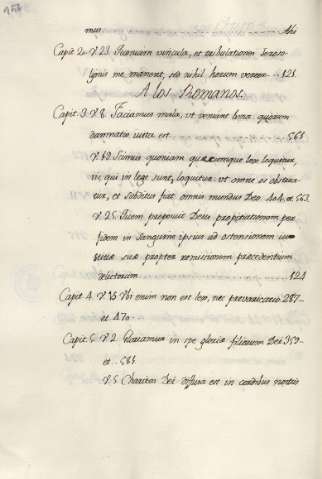 mus ... Ibi
Capit. 20. V. 23. Quoniam vincula, et tribulationes Jeroso-
lymis me manent, sed nihil horum vereor ... 121.
A los Romanos
Capit. 3. V. 8. Faciamus mala, ut veniant bona: quorum
damnatio justa est ... 561
V. 19. Scimus quoniam quæcumque lex loquitur,
iis, qui in lege sunt, loquitur: ut omne os obstrua-
tur, et subditus fiat omnis mundus Deo. 404. et 563.
V. 25. Quem proposuit Deus propitiationem per
fidem in sanguine ipsius ad ostensionem jus-
titiæ suæ propter remissionem præcedentium
delictorum ... 124
Capit. 4. V. 15. Ubi enim non est lex, nec prevaricatio 287-
et 470-
Capit. 5. V. 2. Gloriamur in spe gloriæ filiorum Dei 359-
et 581.
V. 5. Charitas Dei diffusa est in cordibus nostris